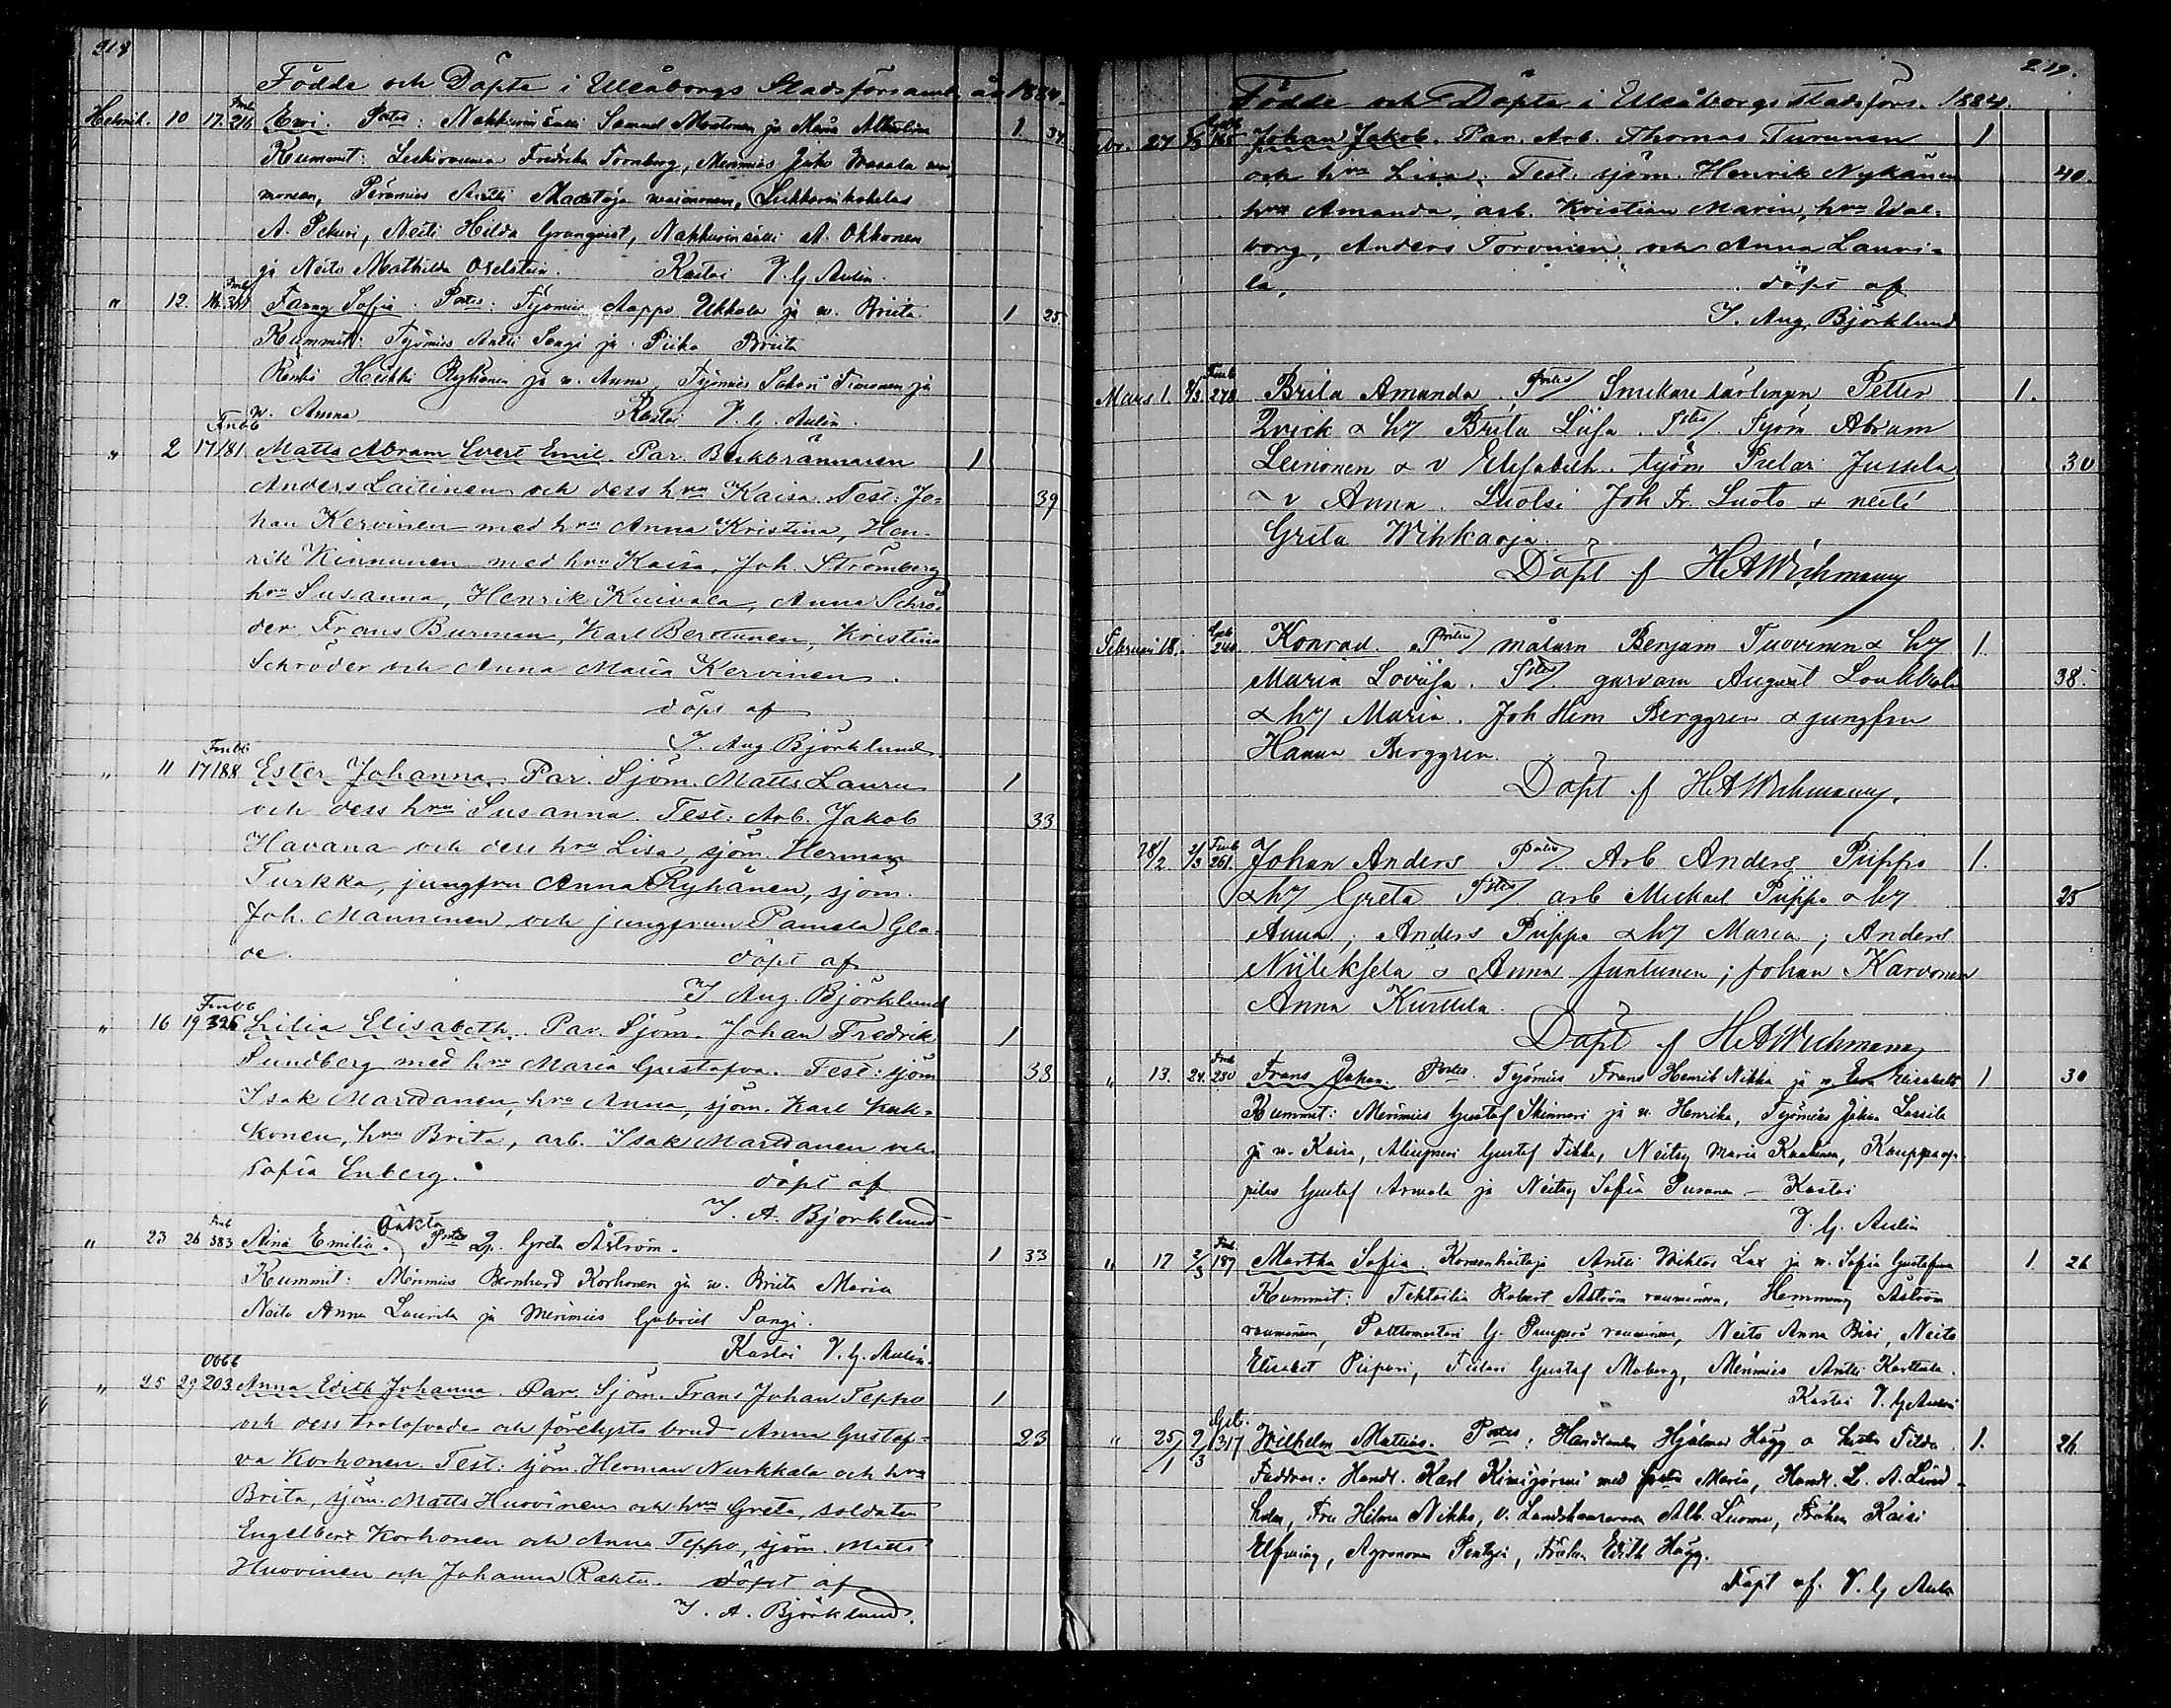 218
Födde och Döpte i Uleåborgs Stadsförsaml. år 1884.
Helmik. 10 17. Fmb 216 Ewi Portes: Nahkurinsälli Samuel Mortonen ja Maria
Kummit: Leskirouwa Fredrika Tornberg, Merimies Juho
monsen, Perämies Antti Madetoja waimonsa,
A. Pekuri, Neiti Hilda Granqvist, Nahkurinsälli A. Okkonen
ja Neito Mathilda Kastoi V. G. Aulin
1. 34.
" 12. Fmb Fanny Sofia. Portes: Työmies Aappo Ukkola ja w. Briita
1 25.
Kummit: Työmies Antti Sangi ja Piika Briita
Renki Heikki Ryhänen ja w. Anna, Työmies Sakari ja
w. Anna Kastoi V. G. Aulin.
" 2 17/181 Fmbb Matts Abram Evert Emil. Par. Beckbrännaren 1
Anders Laitinen och dess hru Kaisa. Test: Jo- 39
han Kervinen med hru Anna Kristina, Hen-
rik Kinnunen med hru Kaisa, Joh. Strömberg
hru Susanna, Henrik Kuivala, Anna Schrö-
der, Frans Burman, Karl Berttunen, Kristina
Schröder och Anna Maria Kervinen.
döpt af
J. Aug Björklund
" 11 17/188 Fmbb Ester Johanna. Par. Sjöm. Matts Lauru 1
och dess hru Susanna. Test: Arb. Jakob 33
Havana och dess hru Lisa, sjöm. Herman
Turkka, jungfru Anna Ryhänen, sjöm.
Joh. Manninen och jungfrun Pamela Gla-
de. döpt af
J. Aug. Björklund
" 16 19 Fmbb 326 Lilia Elisabeth. Par. Sjöm. Johan Fredrik 1
Sundberg med hru Maria Gustafva. Test: sjöm 38
Isak Marttanen, hru Anna, sjöm. Karl Huk-
konen, hru Brita, arb. Isak Marttanen och
Sofia Enberg. döpt af
J. A. Björklund
" 23 26 Fmb 383 Aina Emilia. Oäkta Portes Qp. Greta Åström. 1 33
Kummit: Merimies Bernhard Korhonen ja w. Briita Maria
Neito Anna Laurila ja Merimies Gabriel Sangi.
Kastoi V. G. Aulin.
" 25 29 203 Anna Edith Johanna. Par. Sjöm. Frans Johan Teppo 1
och dess trolofvade och förelysta brud Anna Gustaf- 23
va Korhonen. Test: sjöm. Herman Nurkkala och hru
Brita, sjöm. Matts Huovinen och hru Greta, soldaten
Engelbert Korhonen och Anna Teppo, sjöm. Matts
Huovinen och Johanna Rahtu. döpt af
J. A. Björklund.
219.
Födde och Döpte i Uleåborgs stadsförs. 1884.
27 Johan Jakob. Par. Arb. Thomas Turunen 1
och hru Lisa. Test: sjöm. Henrik Nykänen 40.
hru Amanda, arb. Kristian Marin, hru Wal-
borg, Anders Torvinen och Anna Lauri-
la, döpt af
J. Aug. Björklund
Mars 1. 9/3 Fmb 278 Brita Amanda. Portes Snickare lärlingen Petter 1.
Qvick & h Brita Liisa. Tstes Työm Abram
Leinonen & v Elisabeth. työm Pietari Jussila 30
& v Anna. Luotsi Joh Fr. Luoto & neiti
Greta Wihkaoja.
Döpt af HAWichmann
Februari 18. 240 Konrad. Portes målarn Benjam Tuovinen & h 1.
Maria Lovisa. Tstes garvarn August Loukkola 38.
& h Maria. Joh Hem Berggren & jungfru
Hanna Berggren.
Döpt af HAWichmann.
28/2. 2/3 Fmb 261. Johan Anders Portes Arb Anders Piippo 1.
& h Greta Tstes arb Mickael Piippo & h 25
Anna; Anders Piippo & h Maria; Anders
Niileksela & Anna Juntunen; Johan Karvonen
Anna Kurttila.
Döpt af HAWichmann
" 13. 24. Fmb 280 Frans Johan. Portes. Työmies Frans Henrik Nikka ja w. Ewa Elisabeth 1 30
Kummit: Merimies Gustaf Skinnari ja w. Henrika, Työmies Johan Lassila
ja w. Kaisa, Aliupseri Gustaf Tikka, Neitsy Maria Kaakinen, Kauppaop-
pilas Gustaf ja Neitsy Sofia Puranen — Kastoi
V. G. Aulin
" 17 2/3 Fmb 187 Martha Sofia. Koneenhoitaja Antti Wiktor Lax ja w. Sofia Gustafwa 1. 26
Kummit: Tehtailia Robert Åström rouwineen, Hemming Åström
rouwineen, G. rouwineen, Neito Anna, Neito
Elisabet Piipari, Gustaf Moberg, Merimies Antti Karttula.
Kastoi V. G. Aulin
" 25/1 2/3 317 Wilhelm Mattias. Portes: Handlanden Hjalmar Hägg o hustru Tilda. 1. 26.
Faddrar: Handl. Karl Kinisjärvi med fru Maria, Handl. L. A. Lind-
holm, Fru Hilma Nikko, v. Landskamreraren Alb. Luoma, Fröken Kaisi
Elfving, Agronomen Pentzin, Fröken Edith Hägg.
Döpt af. V. G Aulin